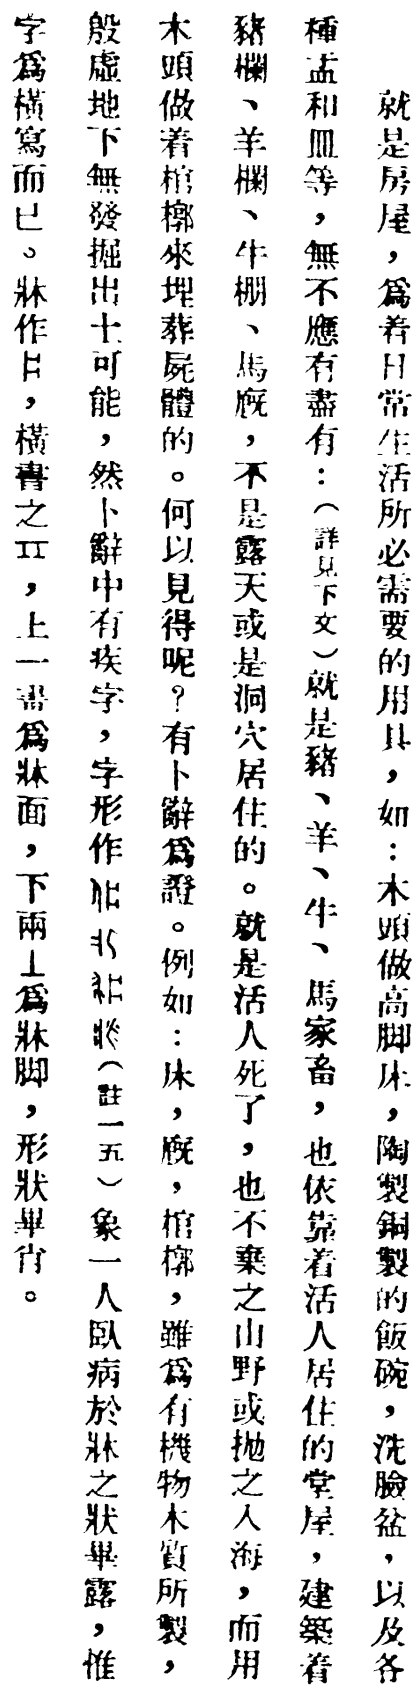 就是房屋，爲着日常生活所必需要的用具，如：木頭做高脚床，陶製銅製的飯碗，洗臉盆，以及各
種盂和皿等，無不應有盡有：（詳見下文）就是豬、羊、牛、馬家畜，也依靠着活人居住的堂屋，建築着
豬欄、羊欄、牛棚、馬廐，不是露天或是洞穴居住的。就是活人死了，也不棄之山野或拋之入海，而用
木頭做着棺槨來埋葬屍體的。何以見得呢？有卜辭爲證。例如：床，廐，棺槨，雖爲有機物木質所製，
殷虛地下無發掘出土可能，然卜辭中有疾字，字形作（註一五）象一人臥病於牀之狀畢露，惟
字爲橫寫而已。牀作，橫書之，上一畫爲牀面，下兩丄爲牀脚，形狀畢肖。